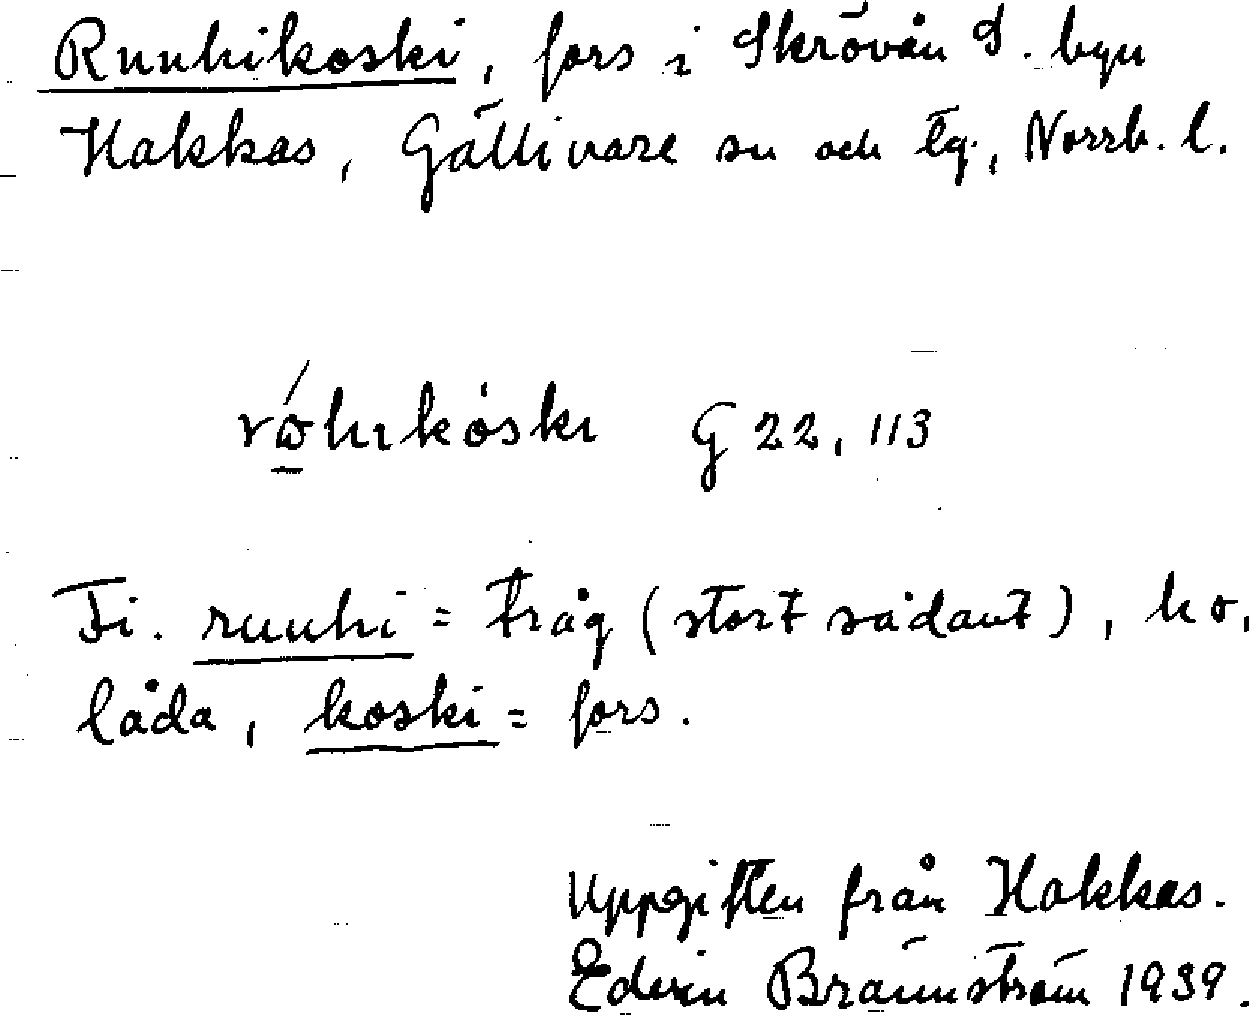 Ruuhikoski, fors i Skrövån S. byn
Hakkas, Gällivare sn och tg., Norrb. l.
G 22, 113
Fi. ruuhi = tråg (stort sådant), ho,
låda, koski = fors.
Uppgiften från Hakkas.
Edvin Brännström 1939.